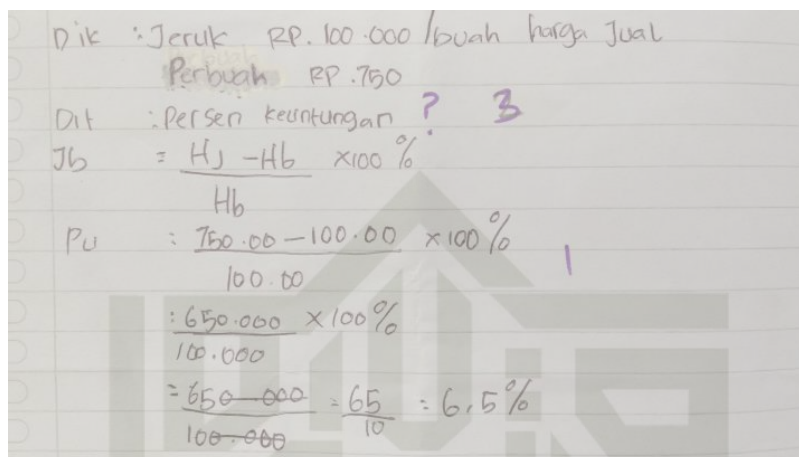 Dik : Jeruk RP. 100.000 /buah harga Jual
Perbuah RP. 750
Dit : Persen keuntungan ? 3
Jb = HJ - Hb x100 %
Hb
Pu : 750.00 - 100.00 x 100 %
100.00
1
: 650.000 x 100 %
100.000
= 650.000 = 65 : 6,5 %
100.000 10